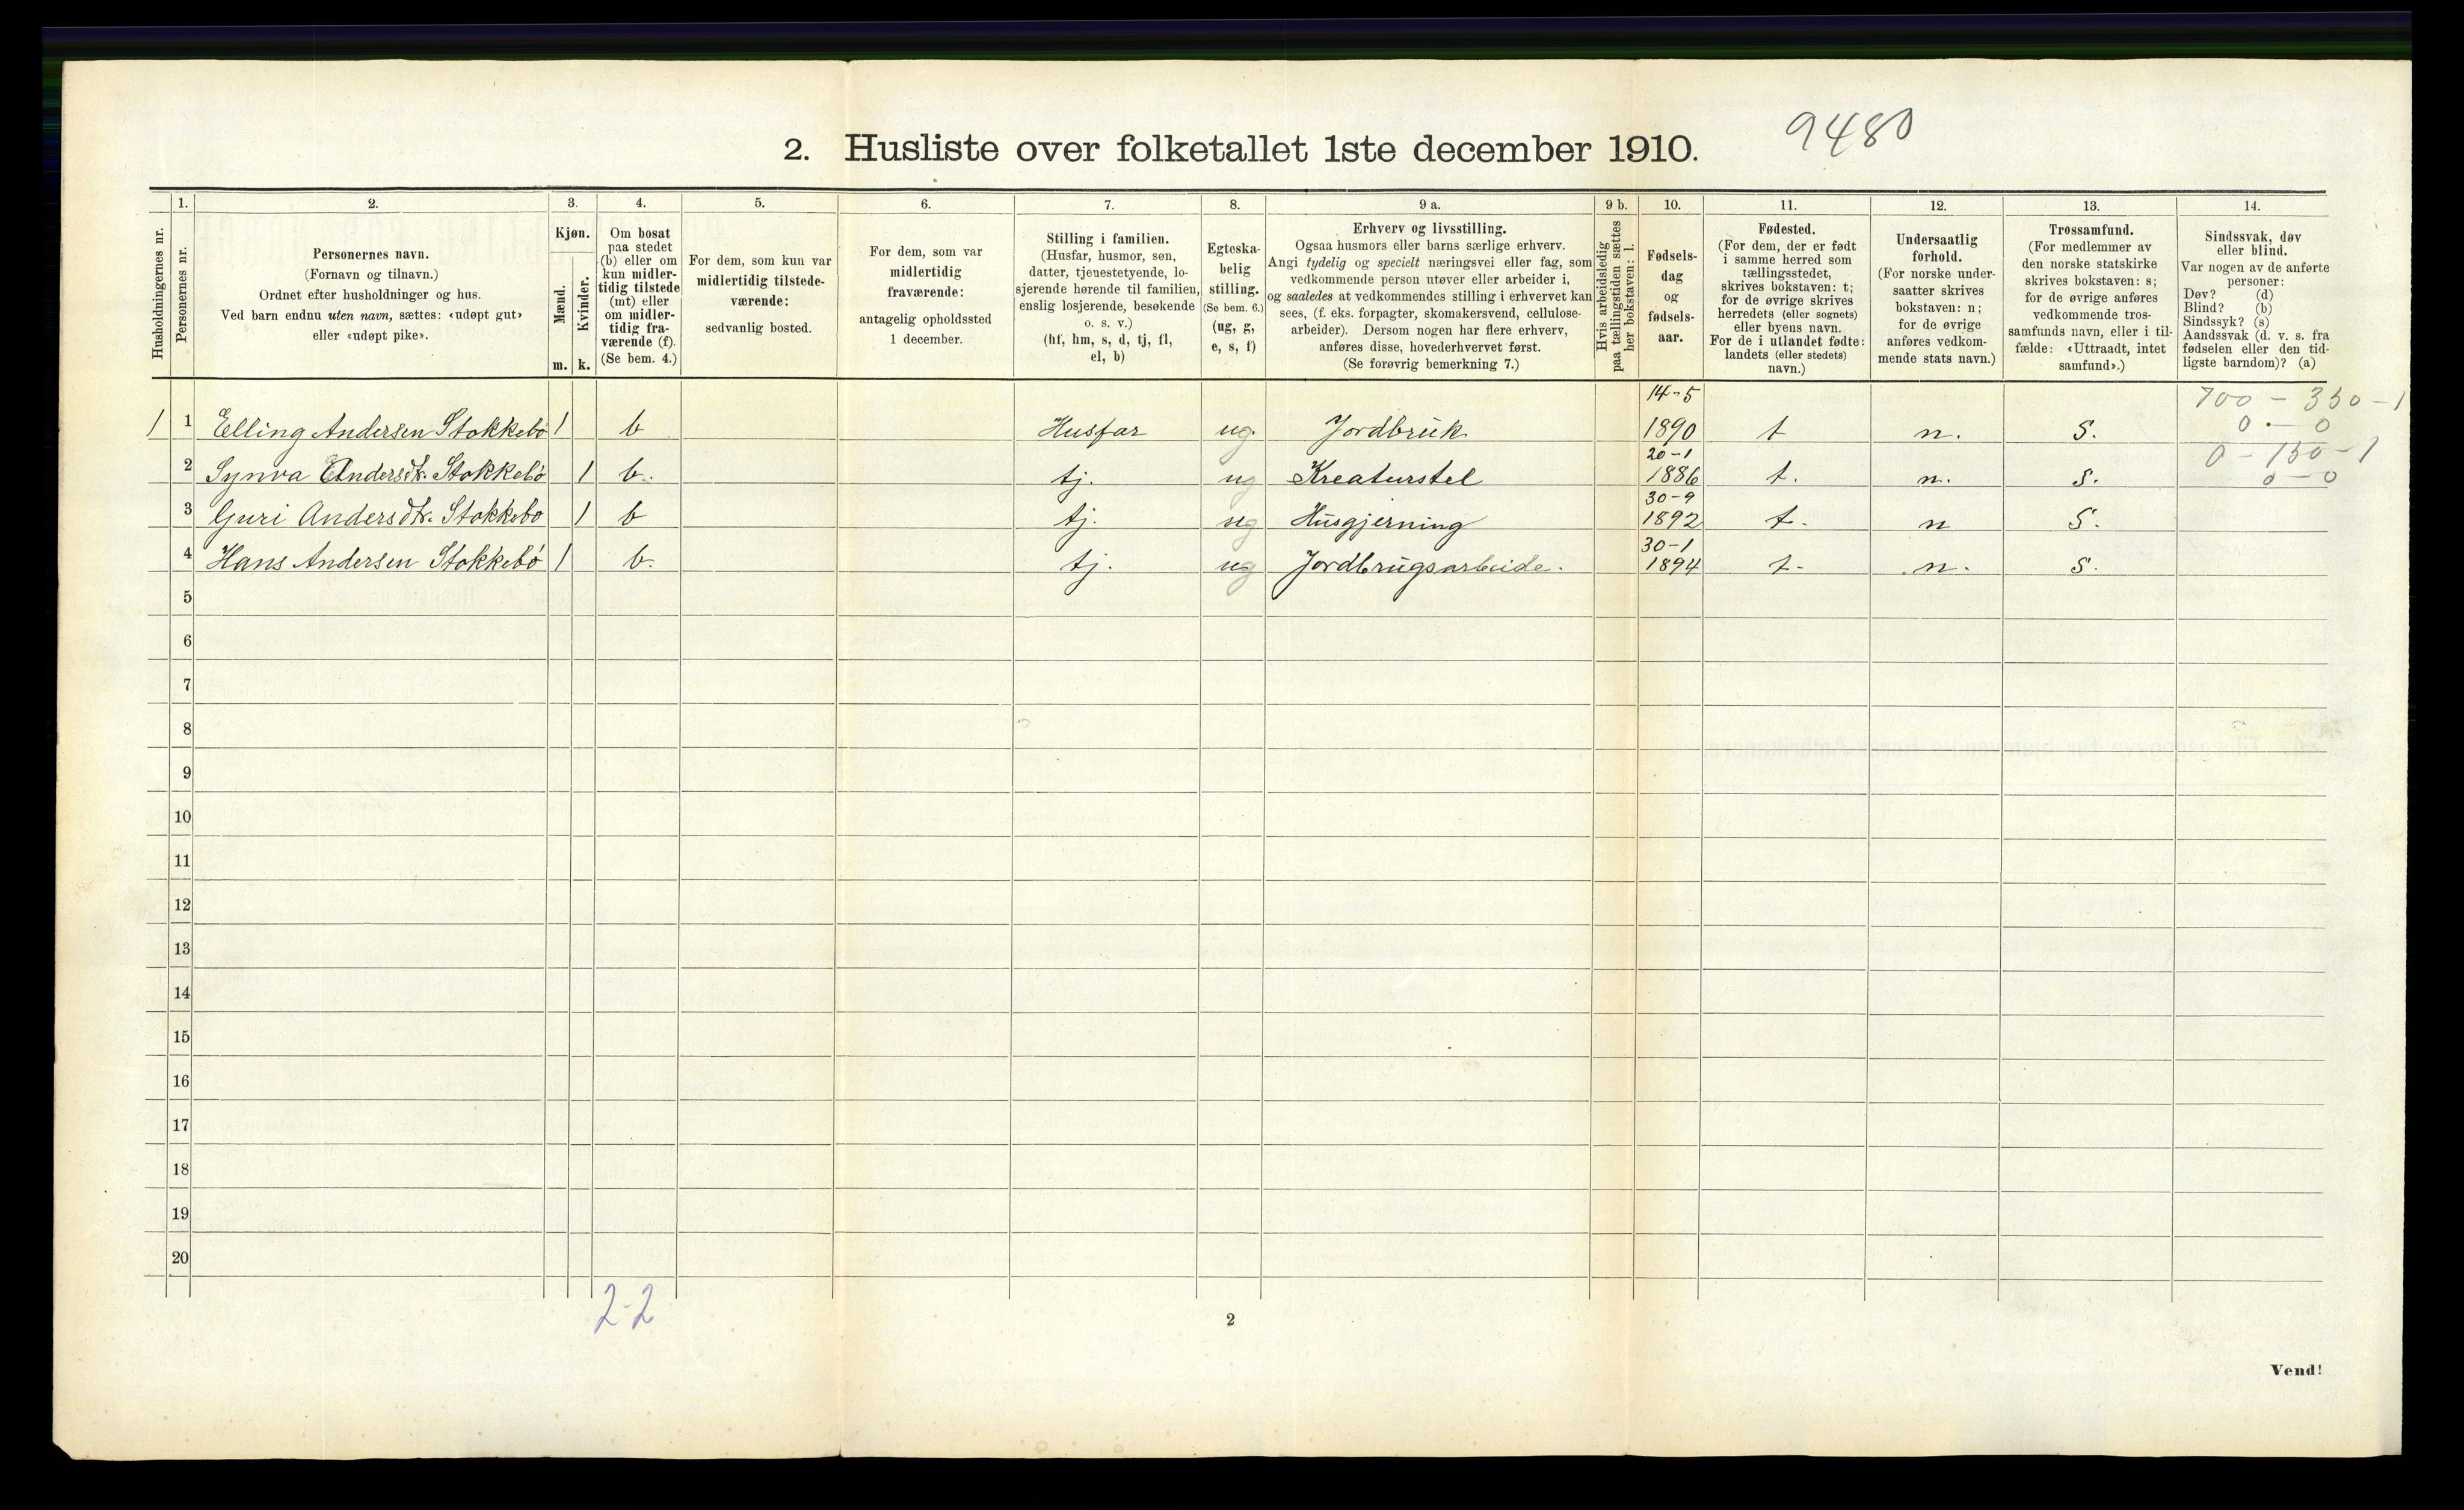 2. Husliste over folketallet 1ste december 1910. 9480
Husholdningernes nr.
1. Personernes nr.
2.
Personernes navn.
(Fornavn og tilnavn.)
Ordnet efter husholdninger og hus.
Ved barn endnu uten navn, sættes: «udøpt gut»
eller «udøpt pike».
3.
Kjøn.
Mænd.
Kvinder.
m. k.
4.
Om bosat
paa stedet
(b) eller om
kun midler-
tidig tilstede
(mt) eller
om midler-
tidig fra-
værende (f).
(Se bem. 4.)
5.
For dem, som kun var
midlertidig tilstede-
værende:
sedvanlig bosted.
6.
For dem, som var
midlertidig
fraværende:
antagelig opholdssted
1 december.
7.
Stilling i familien.
(Husfar, husmor, søn,
datter, tjenestetyende, lo-
sjerende hørende til familien,
enslig losjerende, besøkende
o. s. v.)
(hf, hm, s, d, tj, fl,
el, b)
8.
Egteska-
belig
stilling.
(Se bem. 6.)
(ug, g,
e, s, f)
9 a.
Erhverv og livsstilling.
Ogsaa husmors eller barns særlige erhverv.
Angi tydelig og specielt næringsvei eller fag, som
vedkommende person utøver eller arbeider i,
og saaledes at vedkommendes stilling i erhvervet kan
sees, (f. eks. forpagter, skomakersvend, cellulose-
arbeider). Dersom nogen har flere erhverv,
anføres disse, hovederhvervet først.
(Se forøvrig bemerkning 7.)
9 b.
Hvis arbeidsledig
paa tællingstiden sættes
her bokstaven: l.
10.
Fødsels-
dag
og
fødsels-
aar.
11.
Fødested.
(For dem, der er født
i samme herred som
tællingsstedet,
skrives bokstaven: t;
for de øvrige skrives
herredets (eller sognets)
eller byens navn.
For de i utlandet fødte:
landets (eller stedets)
navn.)
12.
Undersaatlig
forhold.
(For norske under-
saatter skrives
bokstaven: n;
for de øvrige
anføres vedkom-
mende stats navn.)
13.
Trossamfund.
(For medlemmer av
den norske statskirke
skrives bokstaven: s;
for de øvrige anføres
vedkommende tros-
samfunds navn, eller i til-
fælde: «Uttraadt, intet
samfund».)
14.
Sindssvak, døv
eller blind.
Var nogen av de anførte
personer:
Døv? (d)
Blind? (b)
Sindssyk? (s)
Aandssvak (d. v. s. fra
fødselen eller den tid-
ligste barndom)? (a)
14-5 700 - 350 - 1
1 1 Elling Andersen Stokkebø 1 b Husfar ug. Jordbruk 1890 t n. S. 0 - 0
20-1 0 - 150 - 1
2 Synva Andersdtr. Stokkebø 1 b. tj. ug Kreaturstel 1886 t. n. s. 0 - 0
30-9
3 Guri Andersdtr. Stokkebø 1 b tj. ug Husgjerning 1892 t. n S.
30-1
4 Hans Andersen Stokkebø 1 b. tj. ug Jordbrugsarbeide. 1894 t. n. S.
5
6
7
8
9
10
11
12
13
14
15
16
17
18
19
20
2-2
2
Vend!